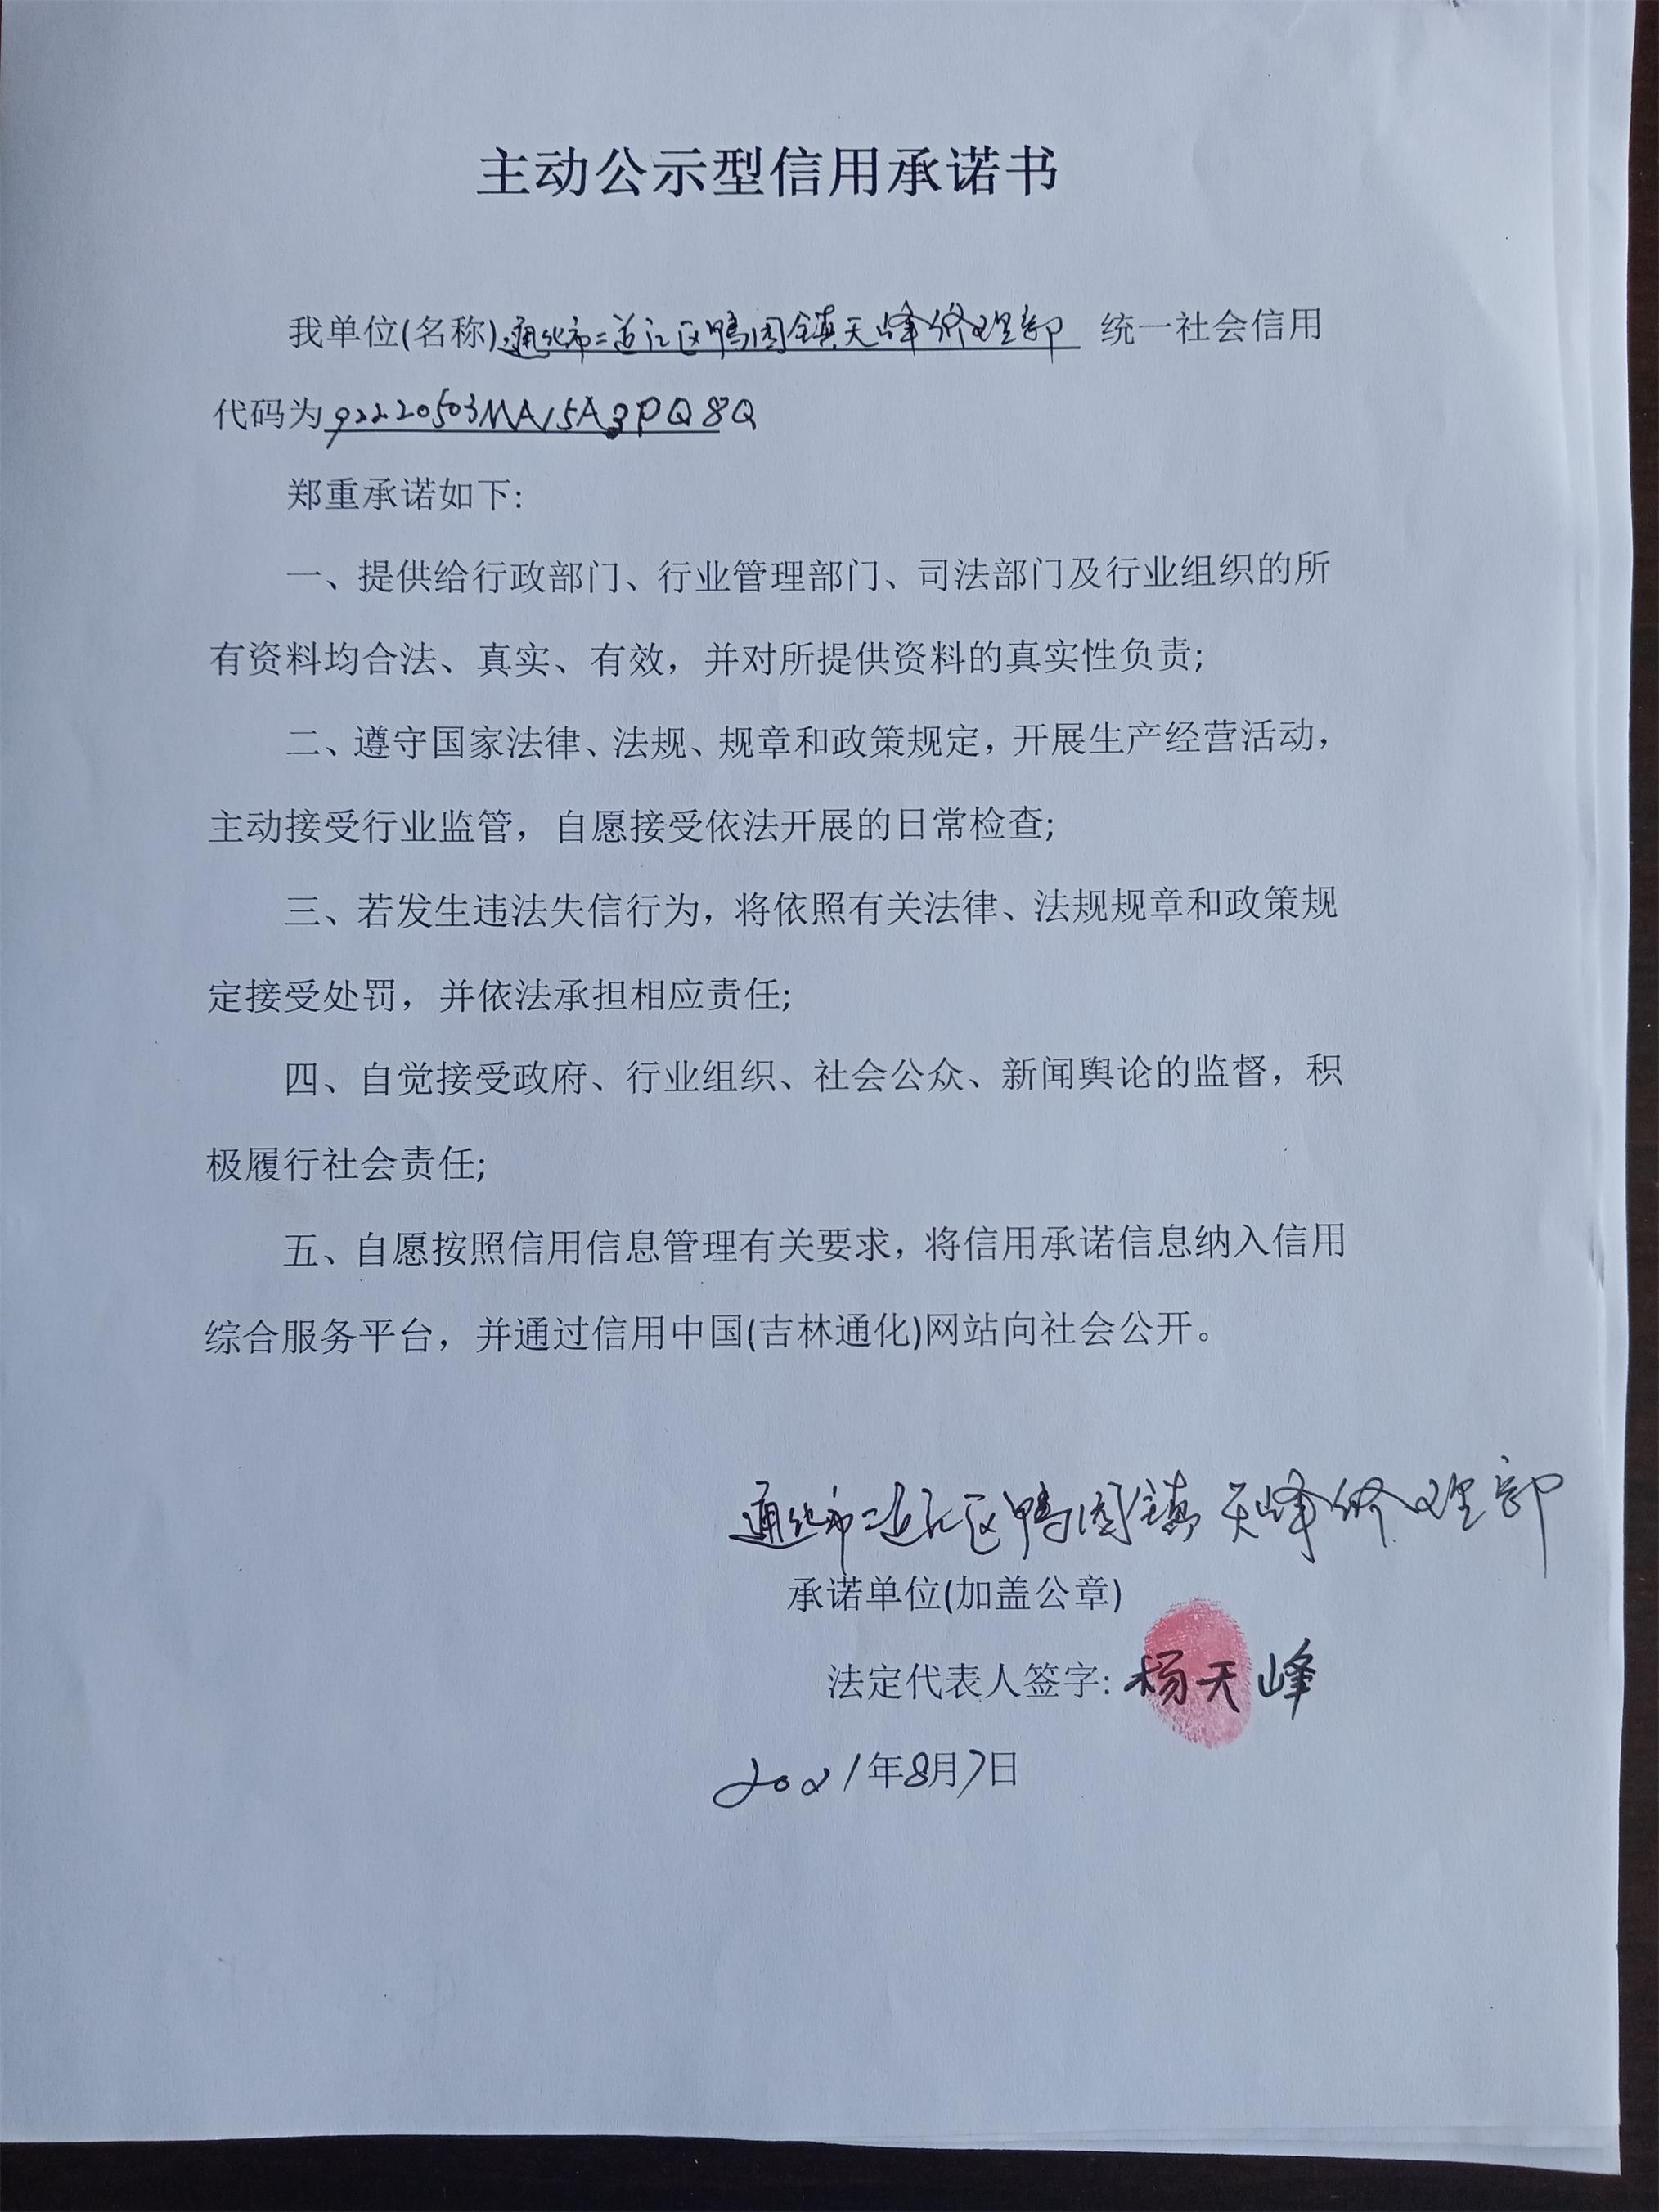 主动公示型信用承诺书
我单位(名称)通化市二道江区鸭园镇天峰修理部 统一社会信用
代码为92220503MA15A3PQ8Q
郑重承诺如下:
一、提供给行政部门、行业管理部门、司法部门及行业组织的所
有资料均合法、真实、有效，并对所提供资料的真实性负责;
二、遵守国家法律、法规、规章和政策规定，开展生产经营活动，
主动接受行业监管，自愿接受依法开展的日常检查;
三、若发生违法失信行为，将依照有关法律、法规规章和政策规
定接受处罚，并依法承担相应责任;
四、自觉接受政府、行业组织、社会公众、新闻舆论的监督，积
极履行社会责任;
五、自愿按照信用信息管理有关要求，将信用承诺信息纳入信用
综合服务平台，并通过信用中国(吉林通化)网站向社会公开。
通化市二道江区鸭园镇天峰修理部
承诺单位(加盖公章)
法定代表人签字: 杨天峰
2021年8月7日